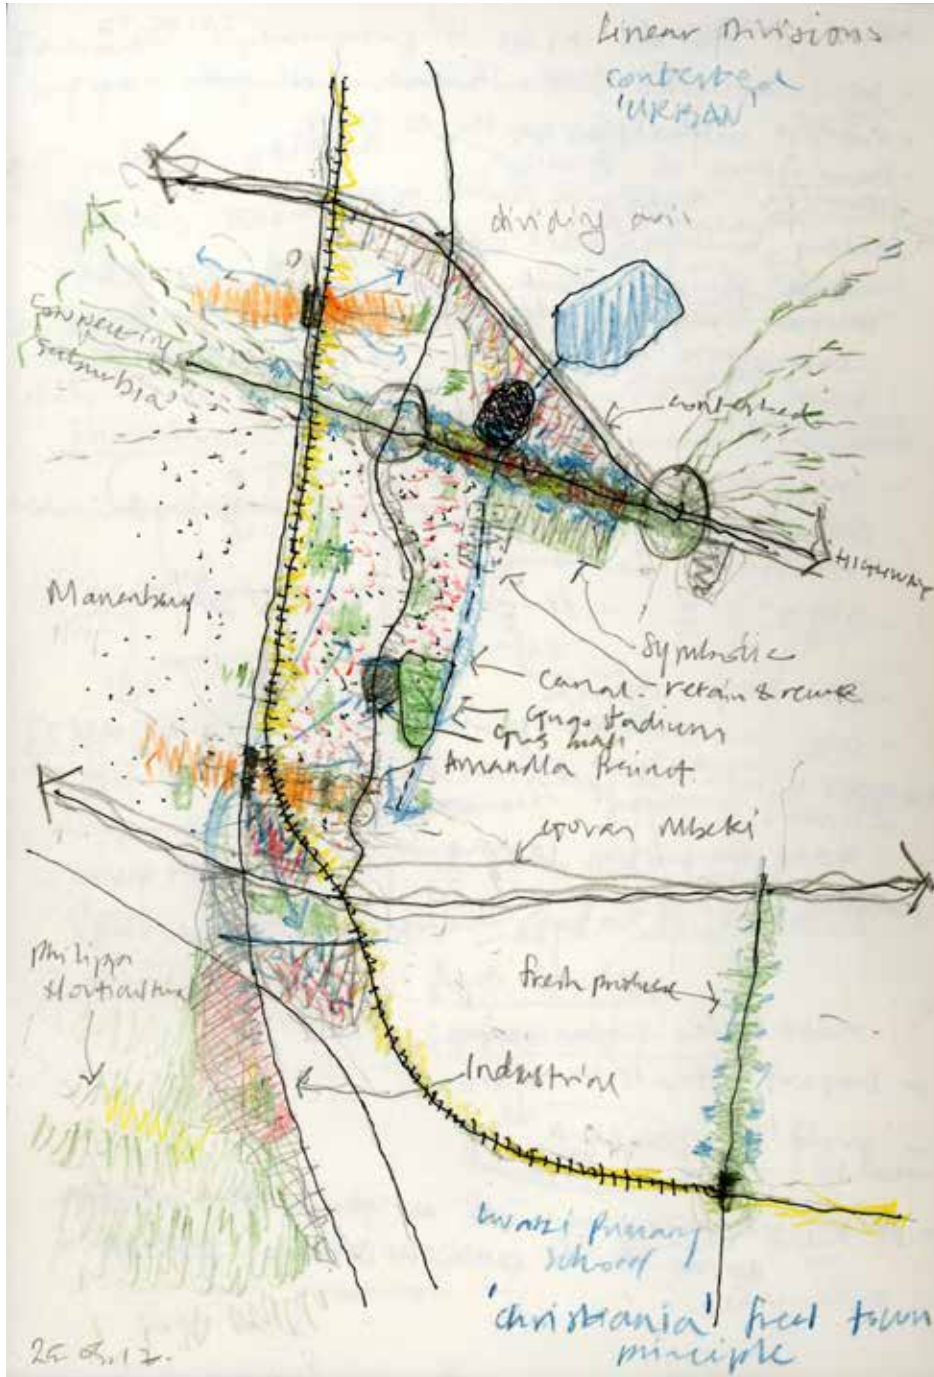 Linear Divisions
contested
'URBAN'
dividing axis
connecting
suburbia
contested
HIGHWAY
Manenberg
symbolic
canal - retain & rework
Gugs stadium
Gugs mall
Amandla precinct
Govan Mbeki
Philippi
Horticulture
fresh produce
Industrial
primary
school
'christiania' free town
principle